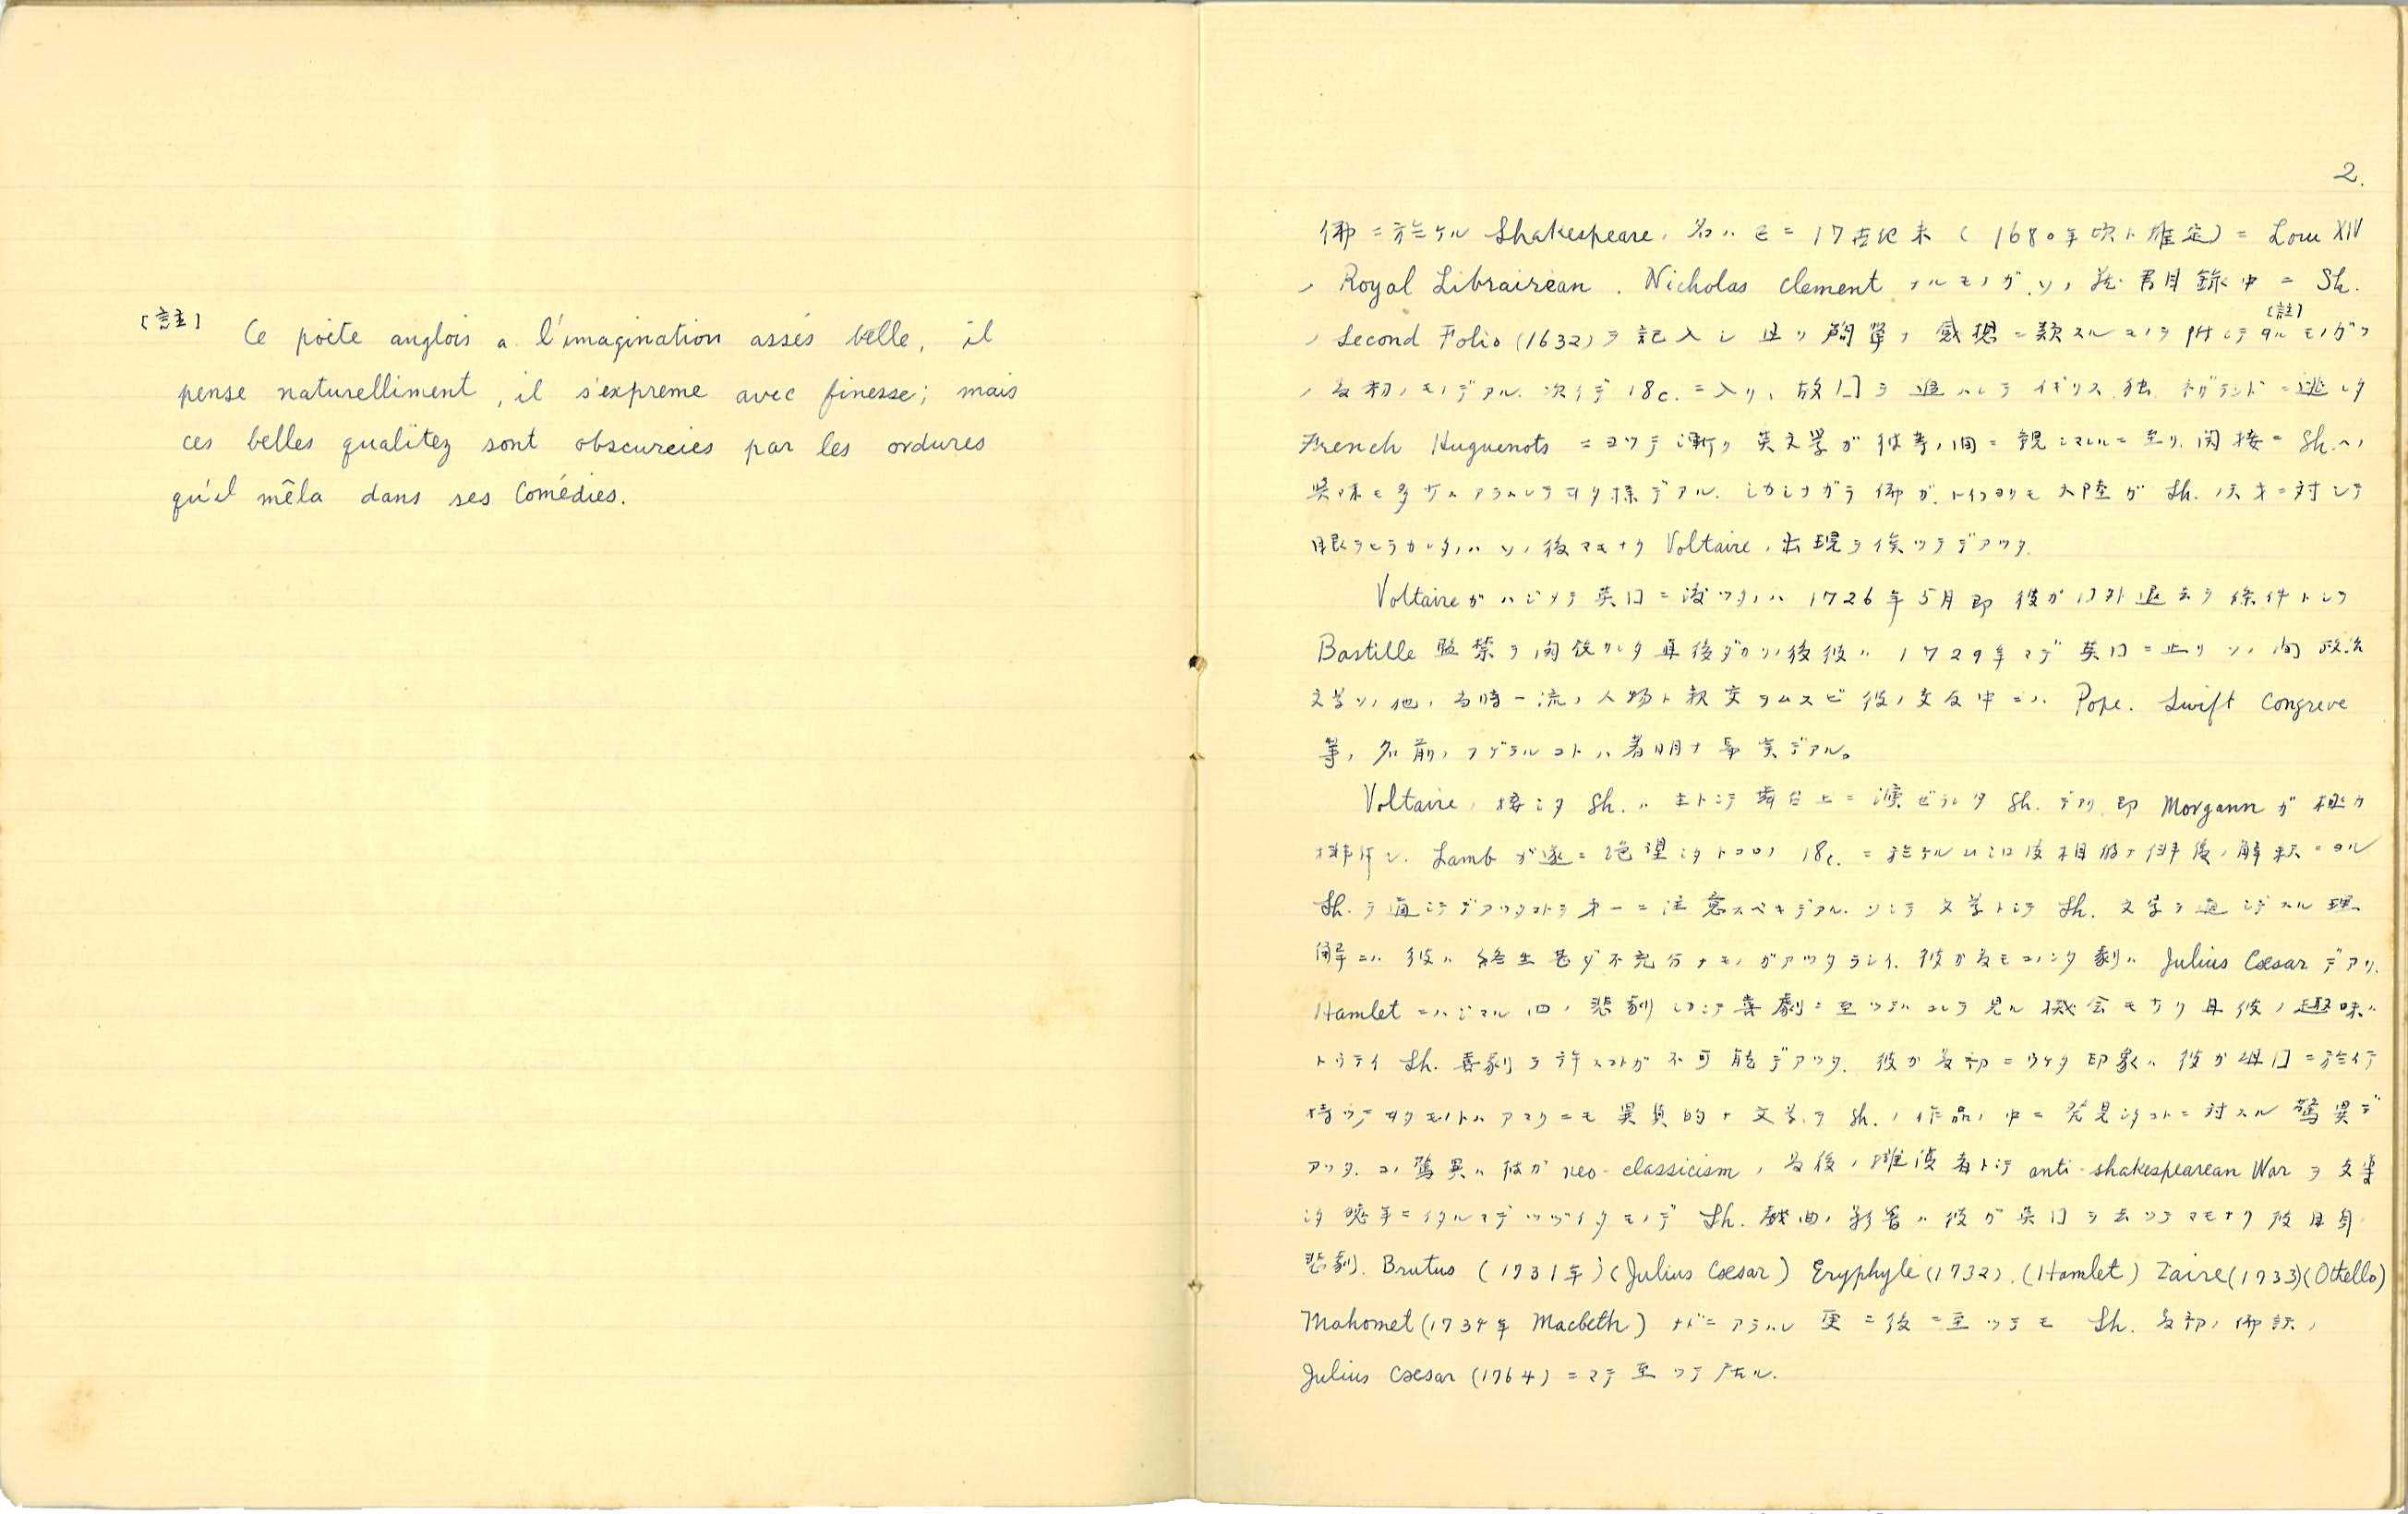 [註] Ce poète anglois a l'imagination assés belle, il
pense naturelliment, il s'expreme avec finesse; mais
ces belles qualitez sont obscurcies par les ordures
qu'il mêla dans ses Comédies.
2.
佛ニ於ケル Shakespeare ノ名ハ已ニ17世紀末(1680年頃ト推定)ニ Louis XIV
ノ Royal Librairean. Nicholas Clement ナルモノガ ソノ蔵書目録中ニ Sh.
[註]
ノ Second Folio (1632)ヲ記入シ且ツ簡単ノ感想ニ類スルコトヲ附シテタルモノガソ
ノ最初ノモノデアル. 次イデ 18c. ニ入リ、故国ヲ追ハレテイギリス
French Huguenots ニヨツテ漸ク英文学ガ彼等ノ間ニ親シマレルニ至リ, 間接ニ Sh. ヘノ
興味モ多少ハアラハレテヰタ様デアル. シカシナガラ佛ガ, トイフヨリモ大陸ガ Sh. ノ天才ニ対シテ
眼ヲヒラカレタノハソノ後マモナク Voltaire ノ出現ヲ俟ツテデアツタ.
Voltaire ガハジメテ英国ニ渡ツタノハ 1726年5月即彼ガ国外退去ヲ条件トシテ
Bastille 監禁ヲ 直後ダガソノ後彼ハ 1729年マデ英国ニ止リソノ間政治
文学ソノ他ノ当時一流ノ人物ト親交ヲムスビ彼ノ交友中ニハ Pope. Swift Congreve
等ノ名前ノアゲラルコトハ著明ナ事実デアル。
Voltaire ノ接シタ Sh. ハ主トシテ舞台上ニ演ゼラレタ Sh. デアリ, 即 Morgann ガ極力
排斥シ. Lamb ガ遂ニ絶望シタトコロノ 18c. ニ於ケルムシロ皮相的ナ俳優ノ解釈ニヨル
Sh. ヲ通シテデアツタコトヲ第一ニ注意スベキデアル. ソシテ文学トシテ Sh. 文字ヲ通ジテスル理
解ニハ彼ハ終生甚ダ不充分ナモノガアツタラシイ. 彼ガ最モコノンダ劇ハ Julius Cæsar デアリ,
Hamlet ニハジマル四ノ悲劇 喜劇ニ至ツテハコレヲ見ル機会モナク且彼ノ趣味ハ
トウテイ Sh. 喜劇ヲ許スコトガ不可能デアツタ. 彼ガ最初ニウケタ印象ハ彼ガ祖国ニ於イテ
持ツテヰタモノトハアマリニモ異質的ナ文学ヲ Sh. ノ作品ノ中ニ発見シタコトニ対スル驚異デ
アツタ. コノ驚異ハ彼ガ neo-classicism ノ最後ノ擁護者トシテ anti-shakespearean War ヲ
シタ晩年ニイタルマデツヅイタモノデ Sh. 戯曲ノ影響ハ彼ガ英国ヲ去ツテマモナク彼自身ノ
悲劇. Brutus (1731年)(Julius Cæsar) Eryphyle (1732). (Hamlet) Zaire (1733)(Othello)
Mahomet (1734年 Macbeth) ナドニアラハレ更ニ後ニ至ツテモ Sh. 最初ノ佛訳ノ
Julius Cæsar (1764) ニマデ至ツテヰル.